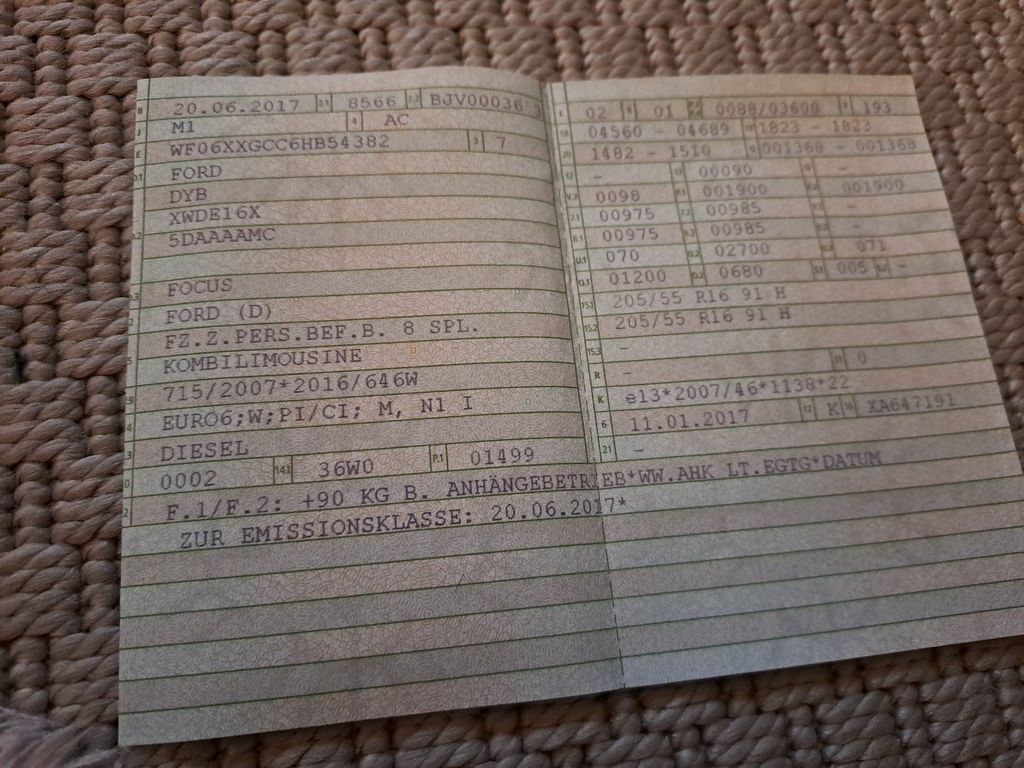 B 20.06.2017 2.1 8566 2.2 BJV00036 3
J M1 4 AC
E WF06XXGCC6HB54382 3 7
D.1 FORD
DYB
XWDE16X
D.2 5DAAAAMC
D.3 FOCUS
2 FORD (D)
5 FZ.Z.PERS.BEF.B. 8 SPL.
KOMBILIMOUSINE
V.9 715/2007*2016/646W
14 EURO6;W;PI/CI; M, N1 I
P.3 DIESEL
10 0002 14.1 36W0 P.1 01499
22 F.1/F.2: +90 KG B. ANHÄNGEBETRIEB*WW.AHK LT.EGTG*DATUM
ZUR EMISSIONSKLASSE: 20.06.2017*
L 02 9 01 P.2 P.4 0088/03600 T 193
18 04560 - 04689 19 1823 - 1823
20 1482 - 1510 G 001368 - 001368
12 - 13 00090 Q -
V.7 0098 F.1 001900 F.2 001900
7.1 00975 7.2 00985 7.3 -
8.1 00975 8.2 00985 8.3 -
U.1 070 U.2 02700 U.3 071
O.1 01200 O.2 0680 S.1 005 S.2 -
15.1 205/55 R16 91 H
15.2 205/55 R16 91 H
15.3 -
R - 11 0
K e13*2007/46*1138*22
6 11.01.2017 17 K 16 XA647191
21 -